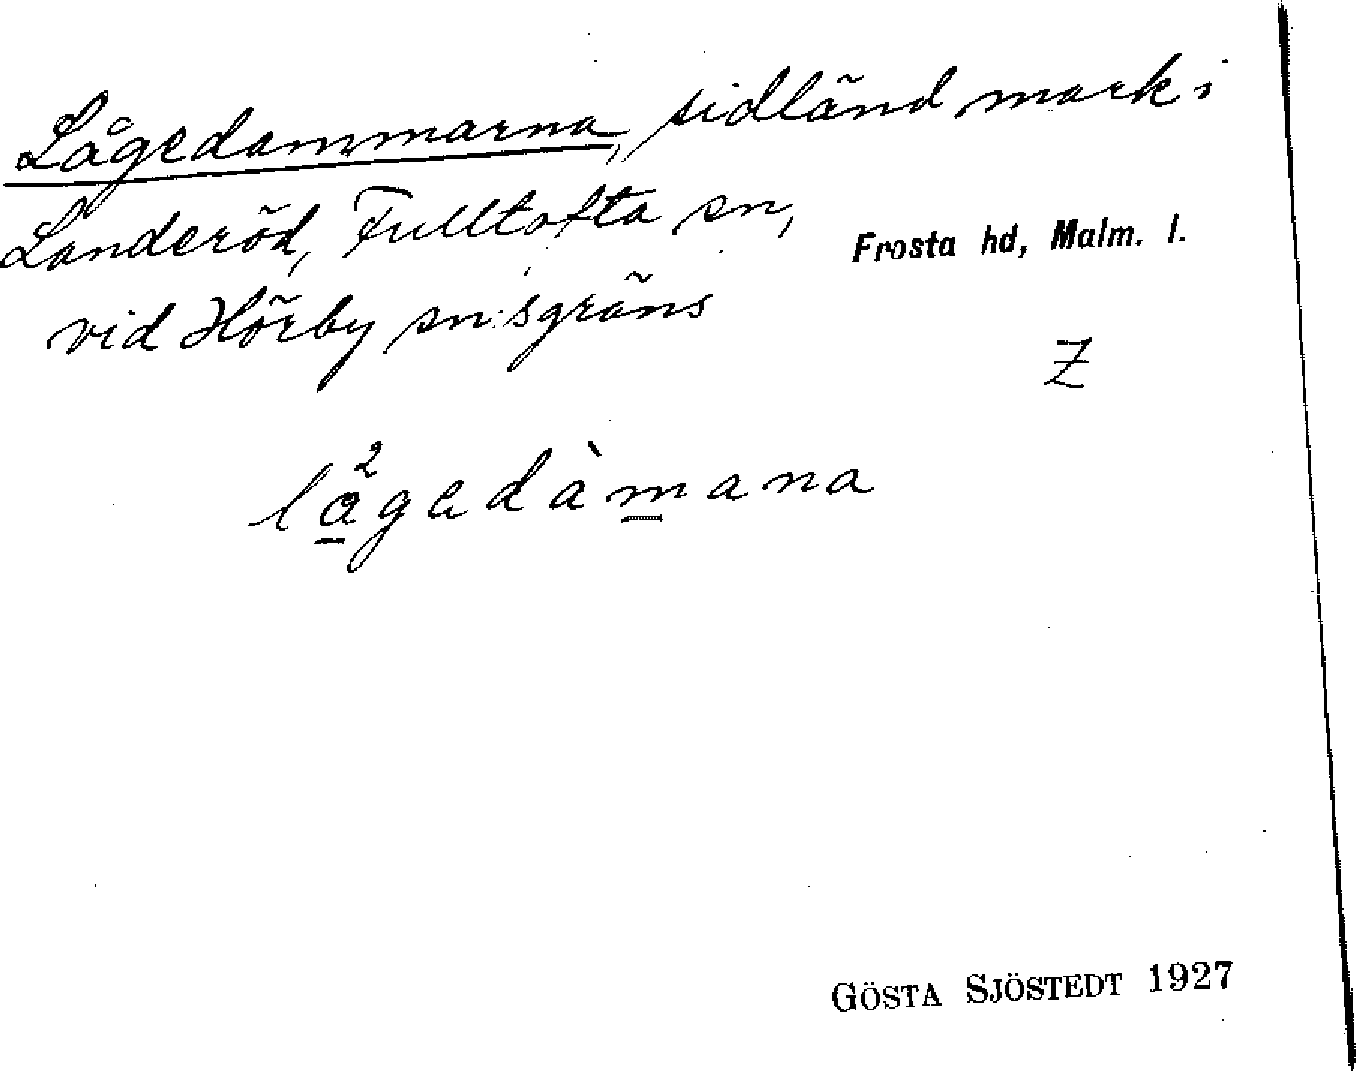 Lågedammarna, sidländ mark i
Landeröd, Fulltofta sn,
Frosta hd, Malm. l.
vid Hörby sn:s gräns
Z
lå²gedàmana
GÖSTA SJÖSTEDT 1927